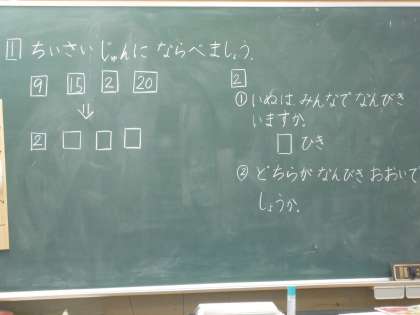 1 ちいさいじゅんにならべましょう.
9 15 2 20
⇓
2 □ □ □
2
① いぬは みんなで なんびき
いますか.
□ ひき
② どちらが なんびき おおいで
しょうか.